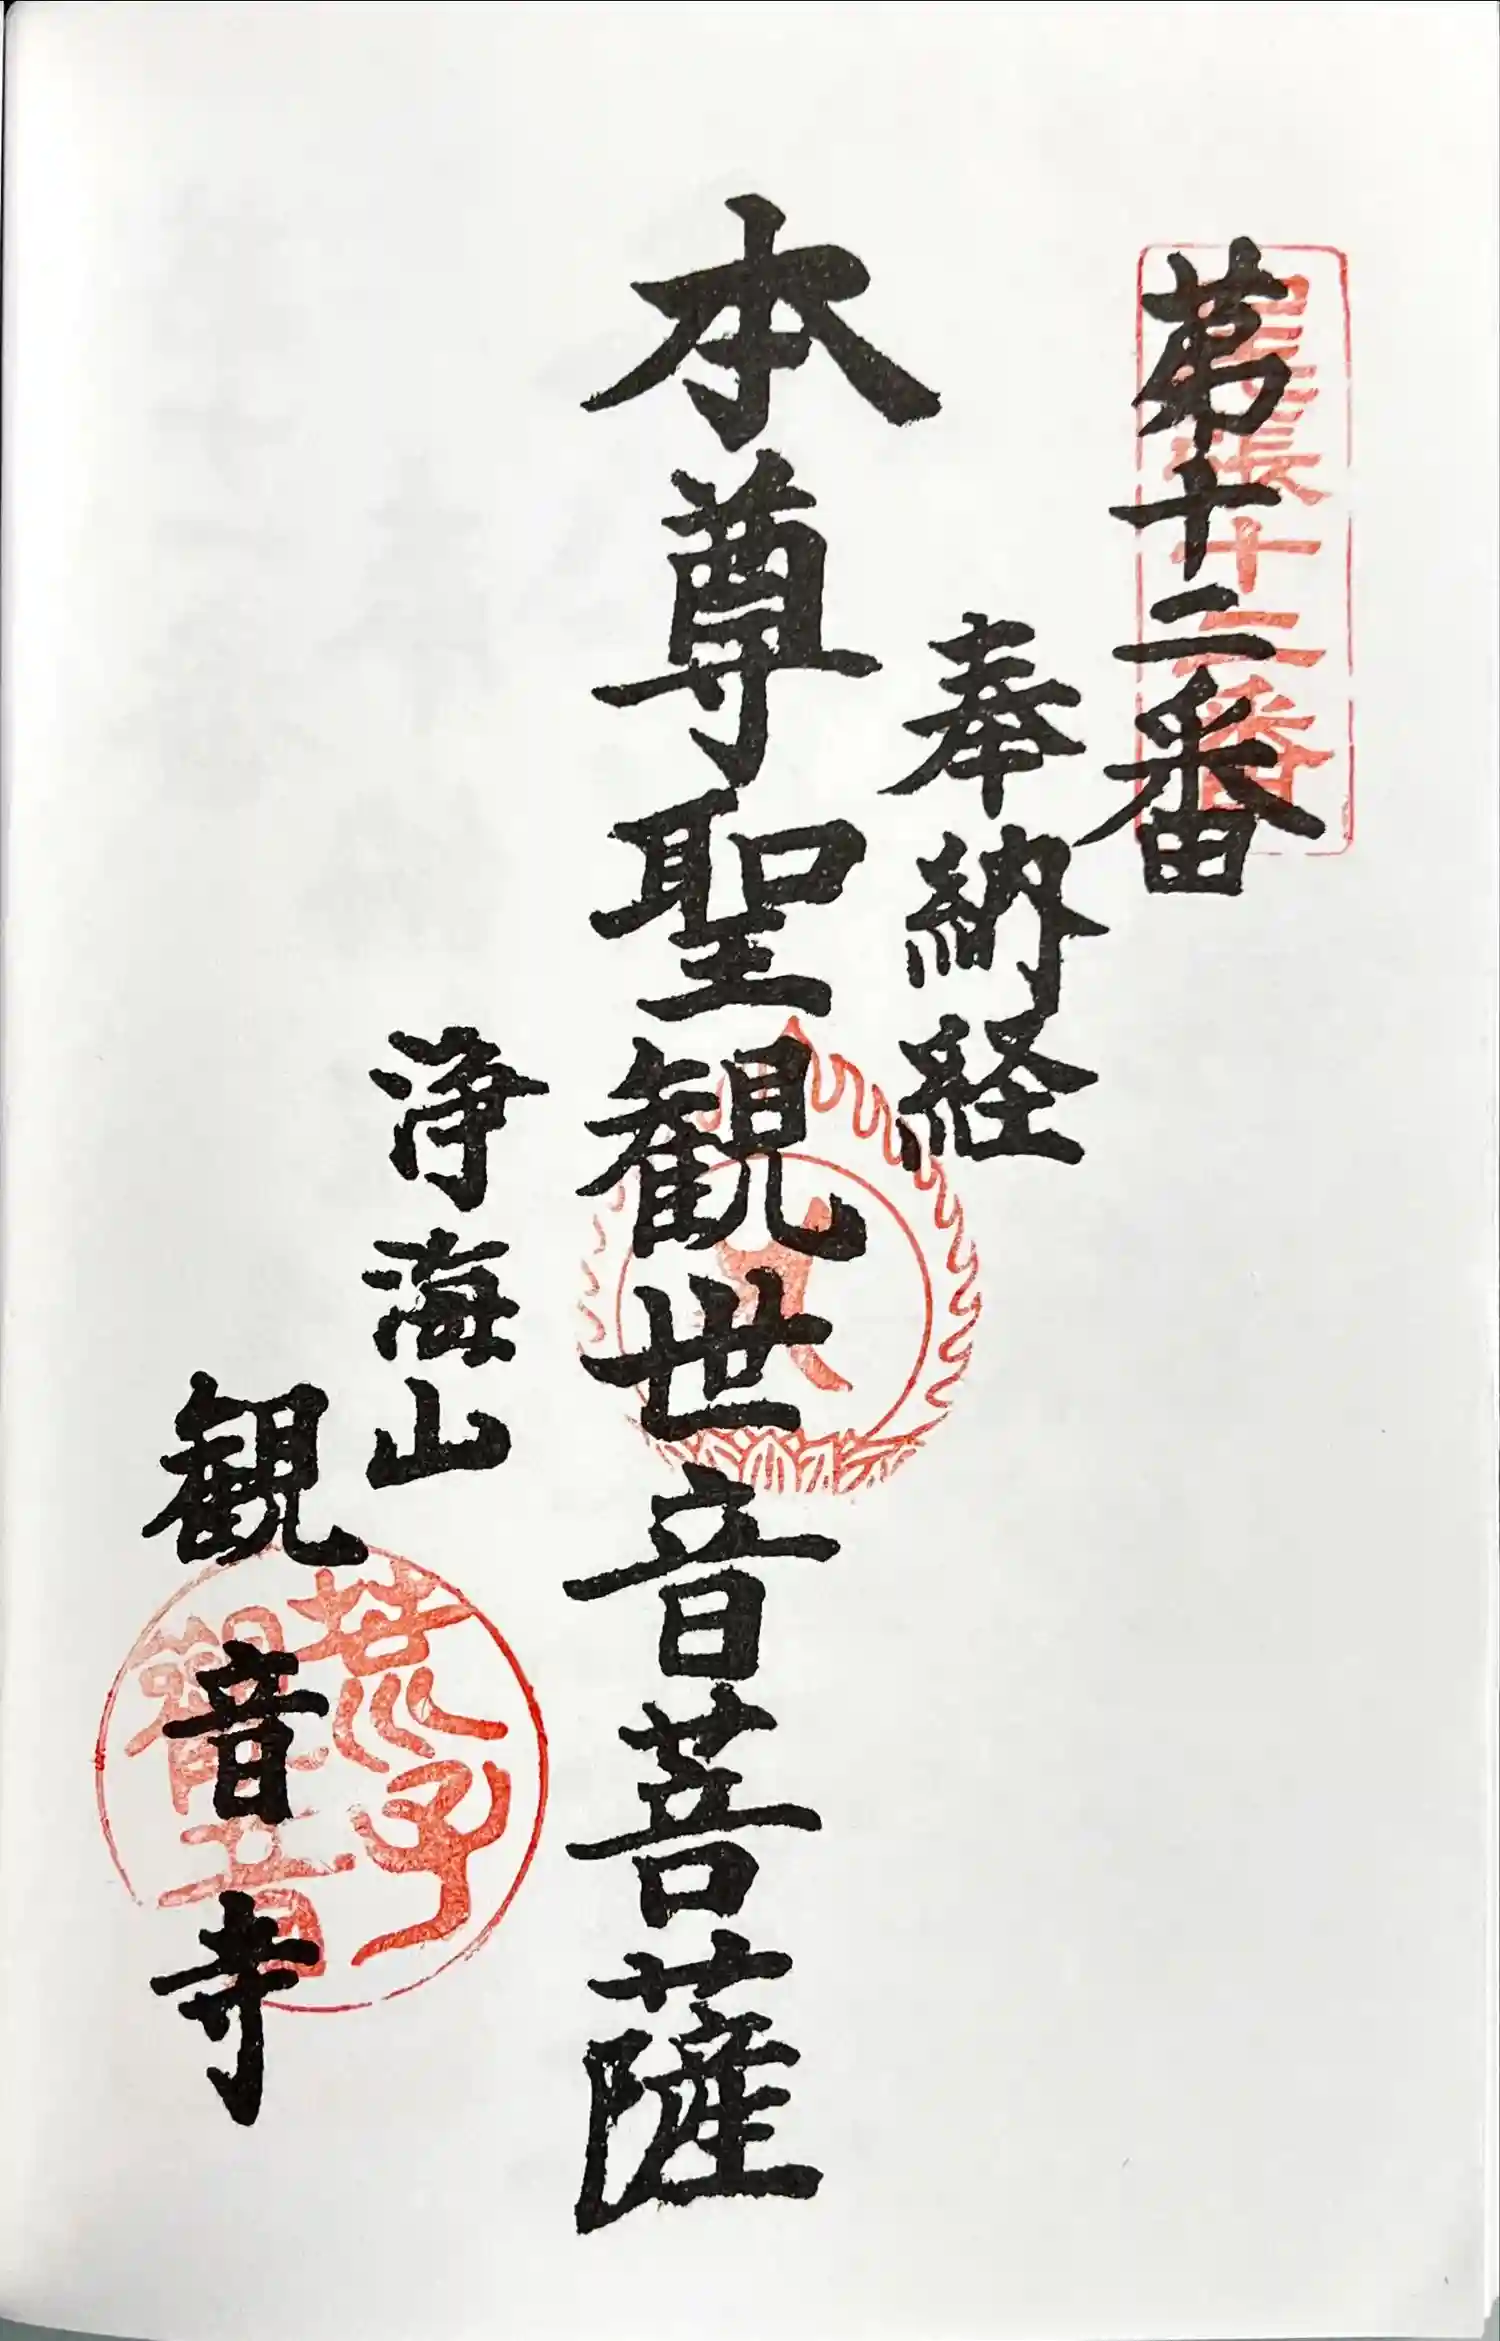 第十二番
尾張十二番
奉納経
本尊聖観世音菩薩
浄海山
観音寺
荒子
観音寺